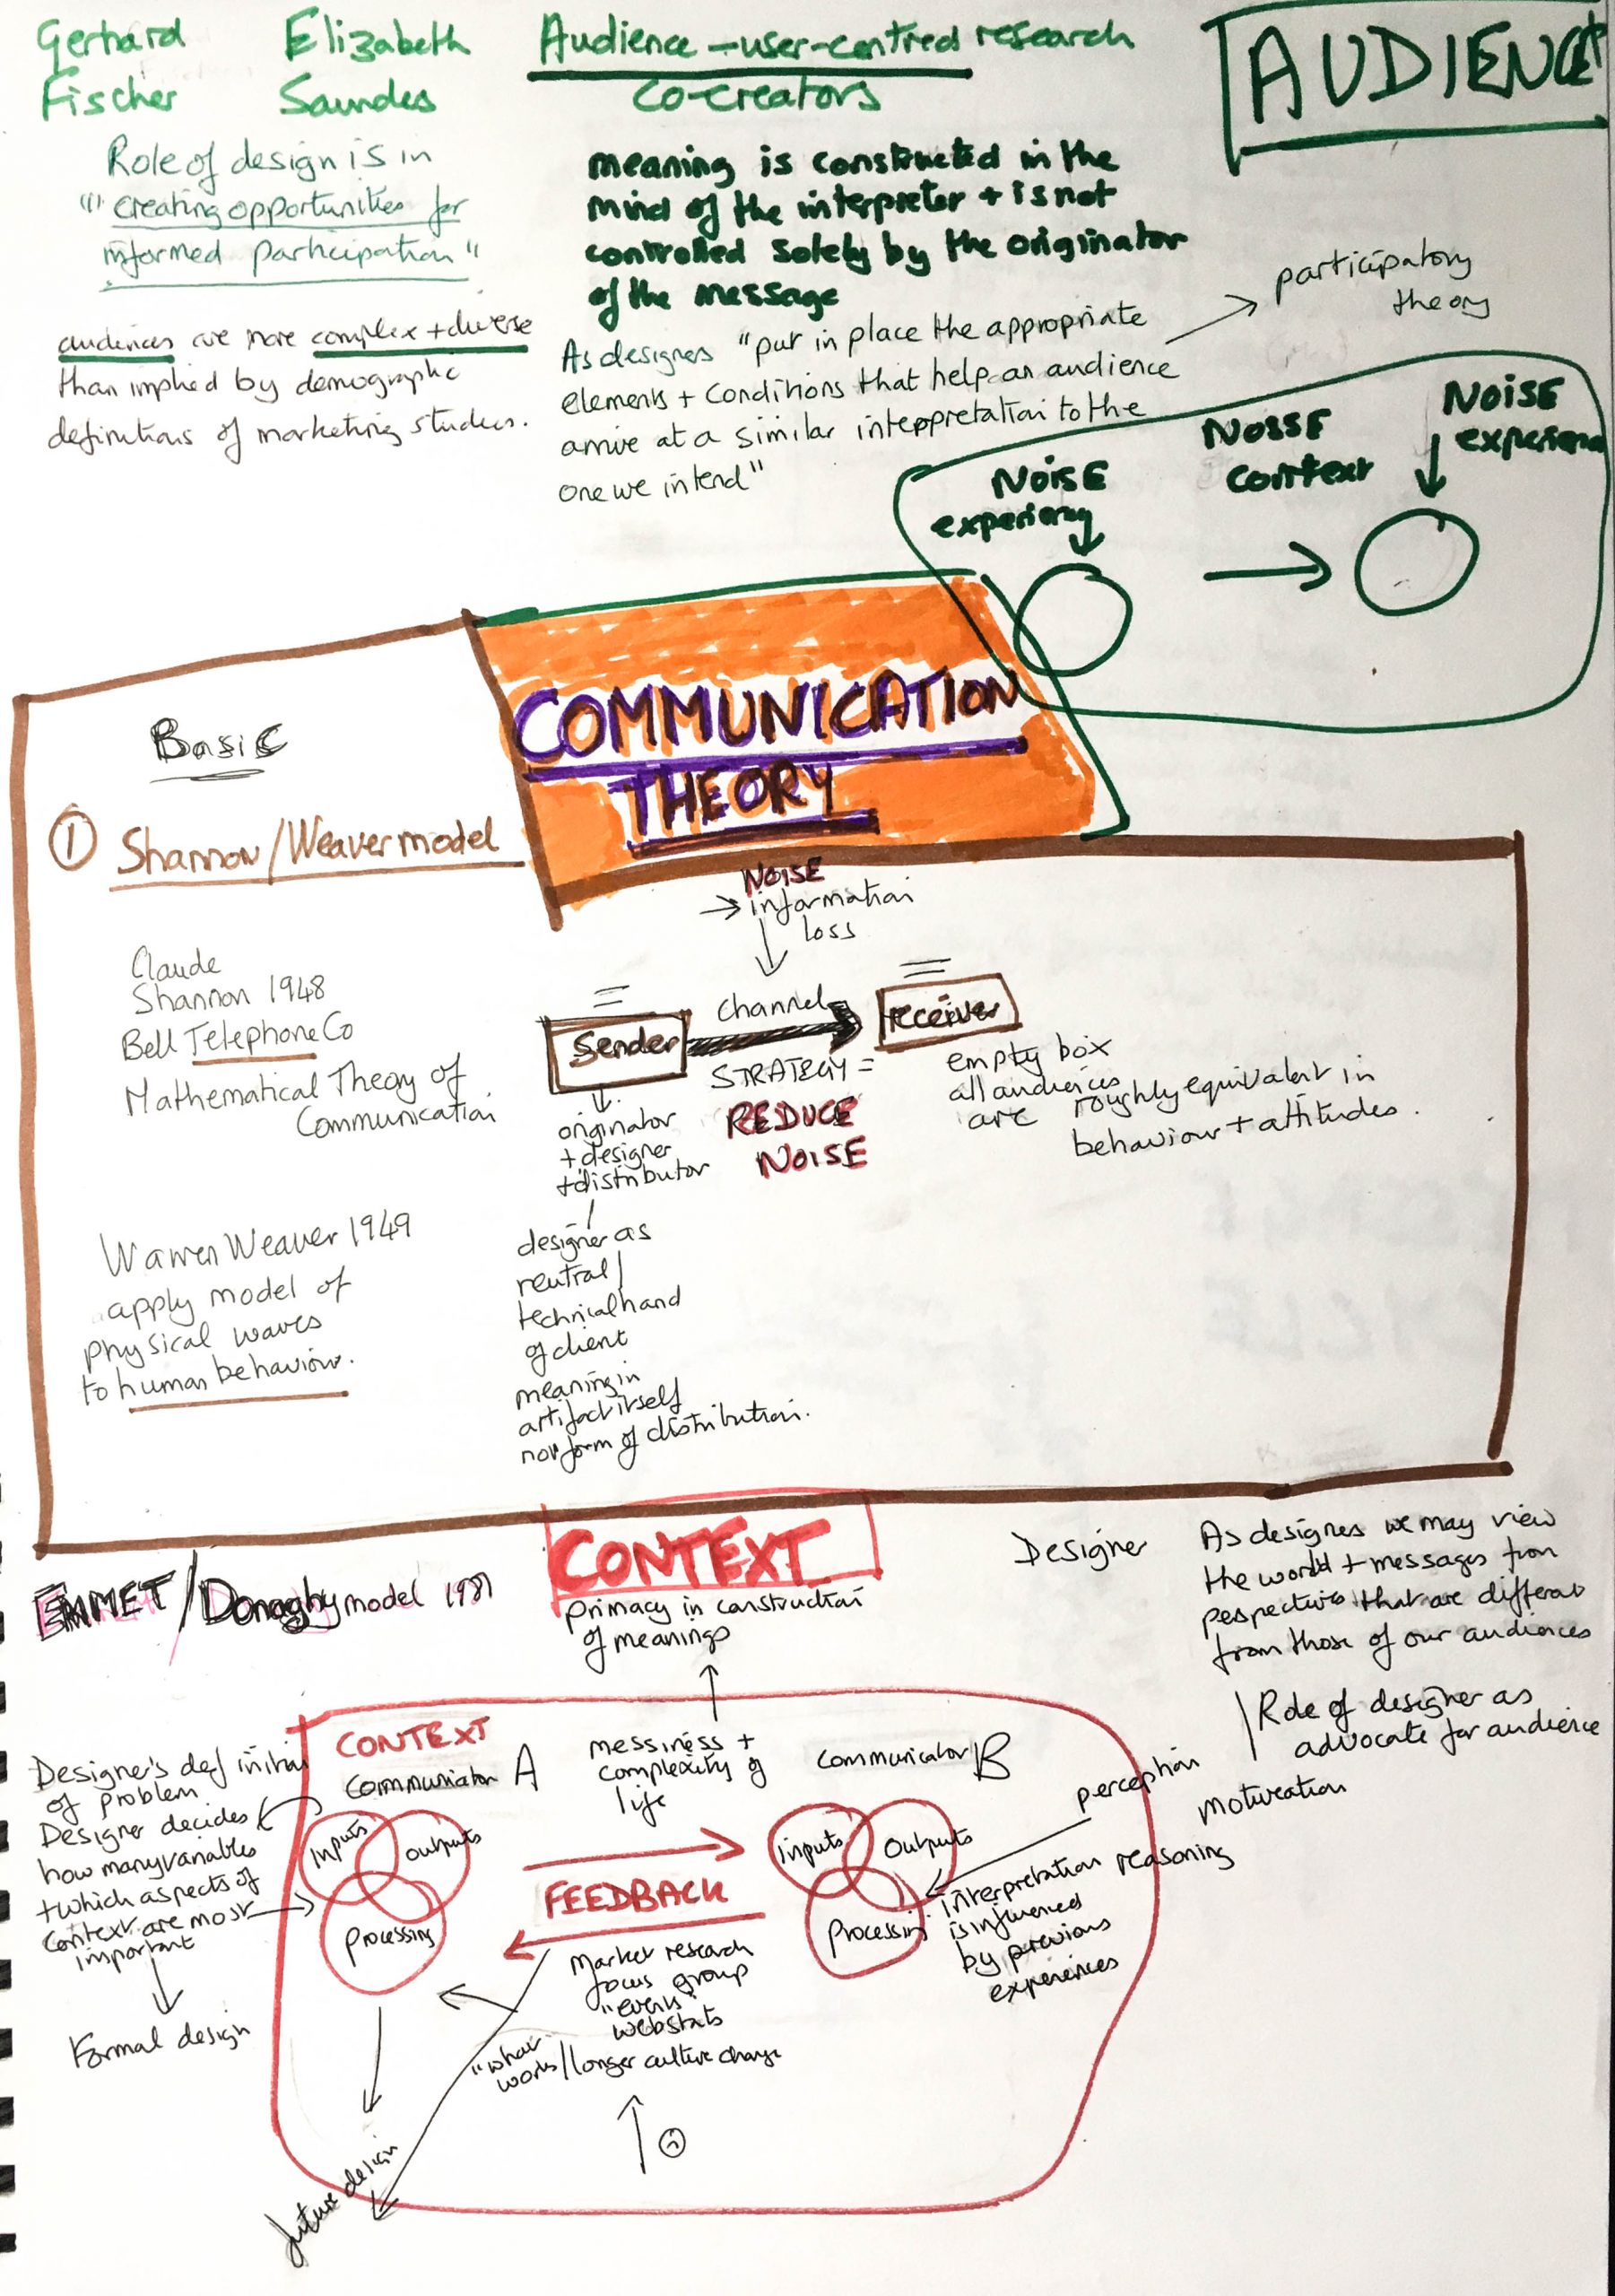 Gerhard
Fischer
Elizabeth
Saundes
Audience - user-centred research
Co-creators
AUDIENCE
Role of design is in
"creating opportunities for
informed participation"
audiences are more complex + diverse
than implied by demographic
definitions of marketing studies.
meaning is constructed in the
mind of the interpreter + is not
controlled solely by the originator
of the message
As designers "put in place the appropriate
elements + conditions that help an audience
arrive at a similar interpretation to the
one we intend"
participatory
theory
NOISE
experiency
NOISE
context
NOISE
experience
COMMUNICATION
THEORY
Basic
① Shannon/Weaver model
Claude
Shannon 1948
Bell Telephone Co
Mathematical Theory of
Communication
Warren Weaver 1949
apply model of
physical waves
to human behaviour.
NOISE
→ information
loss
Sender
Channel
receiver
STRATEGY =
REDUCE
NOISE
originator
+ designer
+ distributor
designer as
neutral/
technical hand
of client
meaning in
artifact itself
not form of distribution.
empty box
all audiences
are roughly equivalent in
behaviour + attitudes.
EMMET/Donaghy model 1981
CONTEXT
primacy in construction
of meanings
Designer
As designes we may view
the world + messages from
pespectives that are different
from those of our audiences
Role of designer as
advocate for audience
Designer's definition
of problem
Designer decides
how many variables
+ which aspects of
context are most
important
Formal design
CONTEXT
Communicator A
inputs
outputs
processing
messiness +
complexity of
life
FEEDBACK
Market research
focus group
"events"
webstats
"what
works/longer culture change
②
future design
communicator B
inputs
Outputs
Processing
perception
motivation
interpretation reasoning
is influenced
by previous
experiences